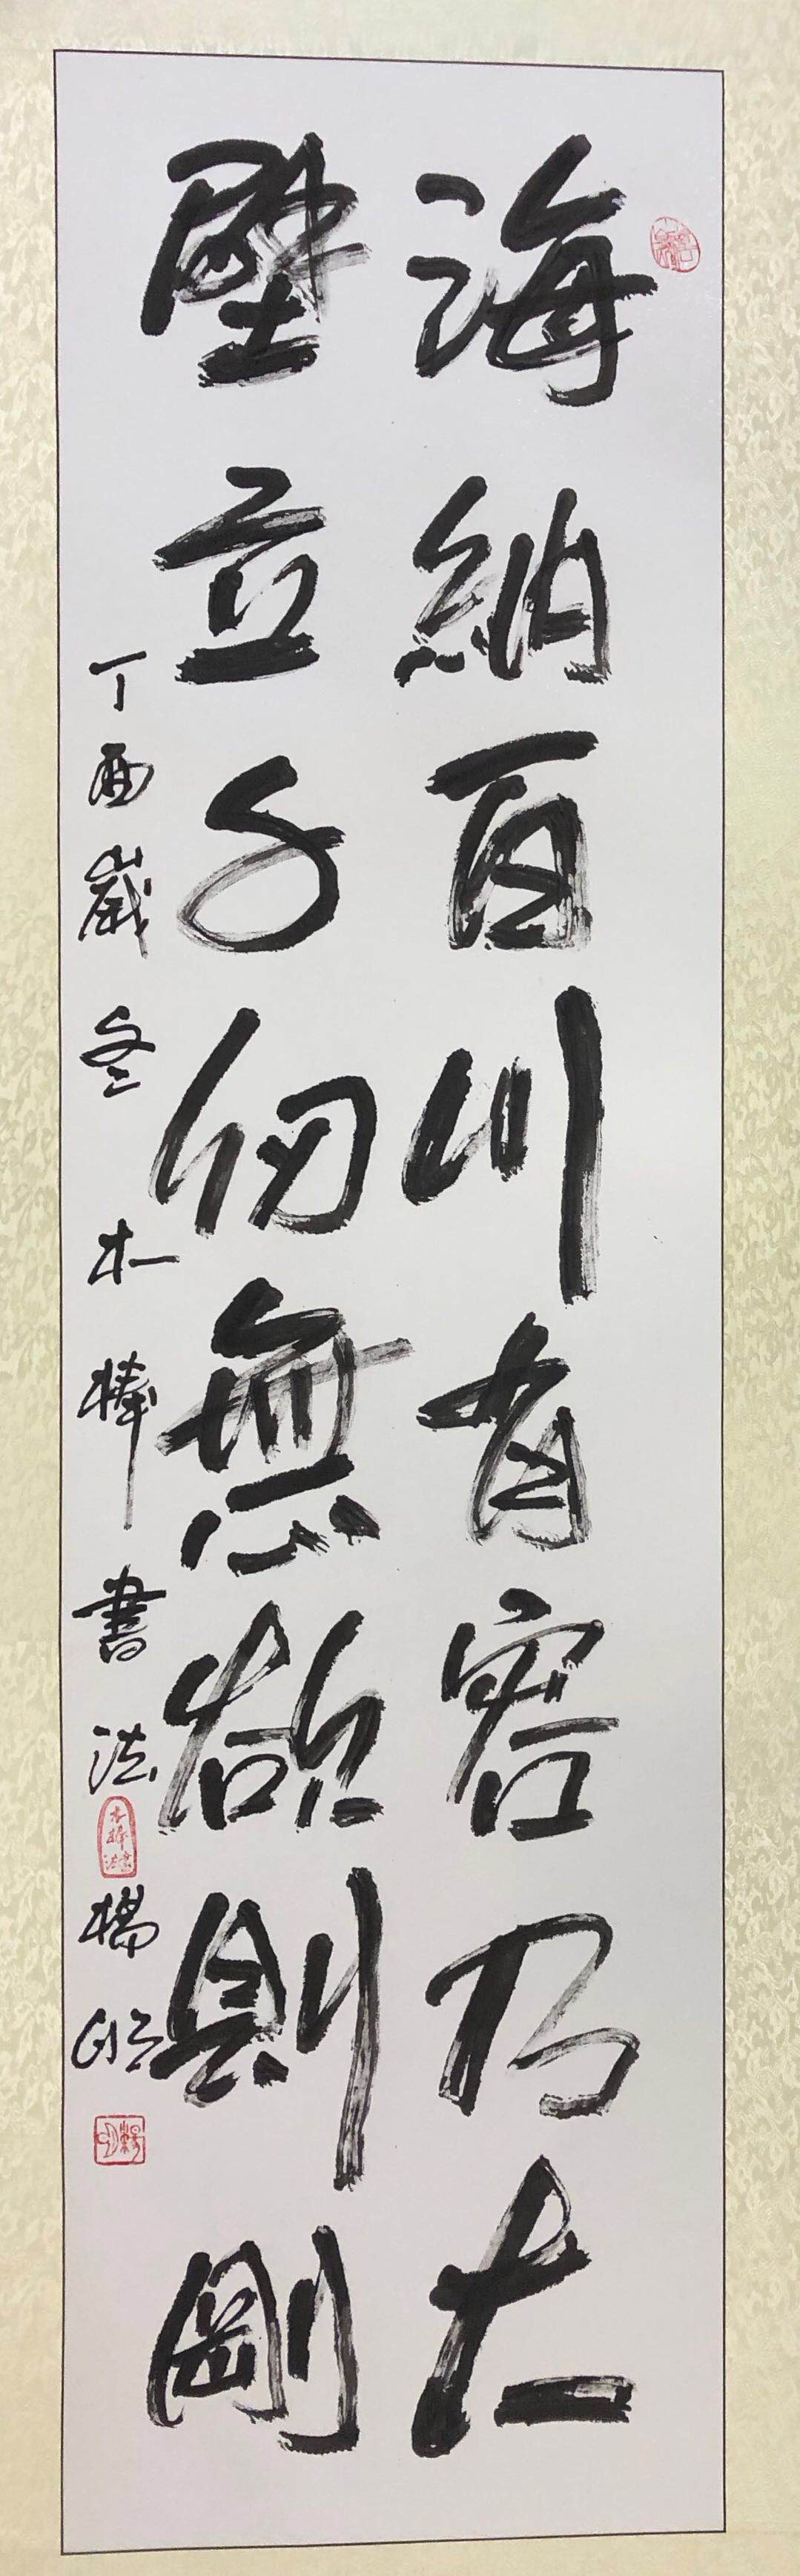 海納百川有容乃大
壁立千仞無欲則剛
丁酉歲冬 木棒書法 楊明